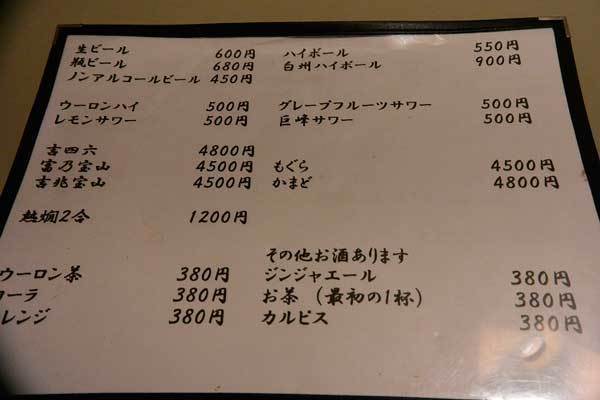 生ビール 600円 ハイボール 550円
瓶ビール 680円 白州ハイボール 900円
ノンアルコールビール 450円
ウーロンハイ 500円 グレープフルーツサワー 500円
レモンサワー 500円 巨峰サワー 500円
吉四六 4800円
富乃宝山 4500円 もぐら 4500円
吉兆宝山 4500円 かまど 4800円
熱燗2合 1200円
その他お酒あります
ウーロン茶 380円 ジンジャエール 380円
コーラ 380円 お茶（最初の1杯） 380円
レンジ 380円 カルピス 380円